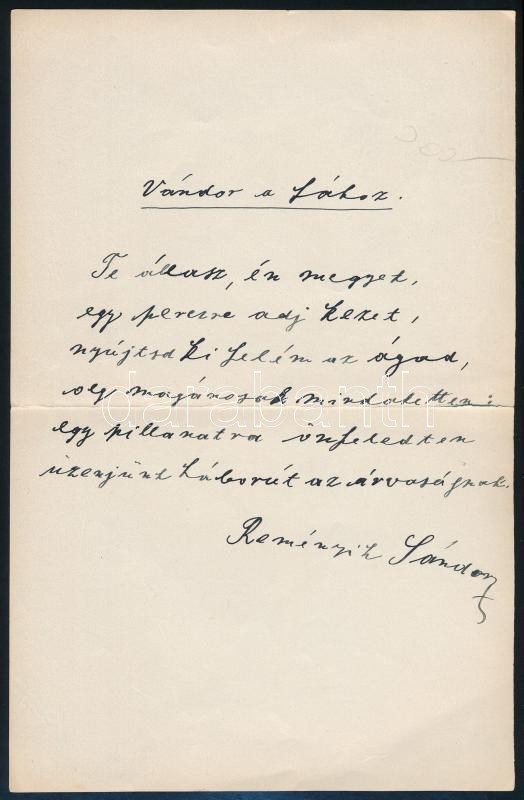 Vándor a fához.
Te állasz, én megyek,
egy percre adj kezet,
nyújtsd ki felém az ágad,
oly magánosak mindaketten:
egy pillanatra önfeledten
üzenjünk háborút az árvaságnak.
Reményik Sándor
darabanth